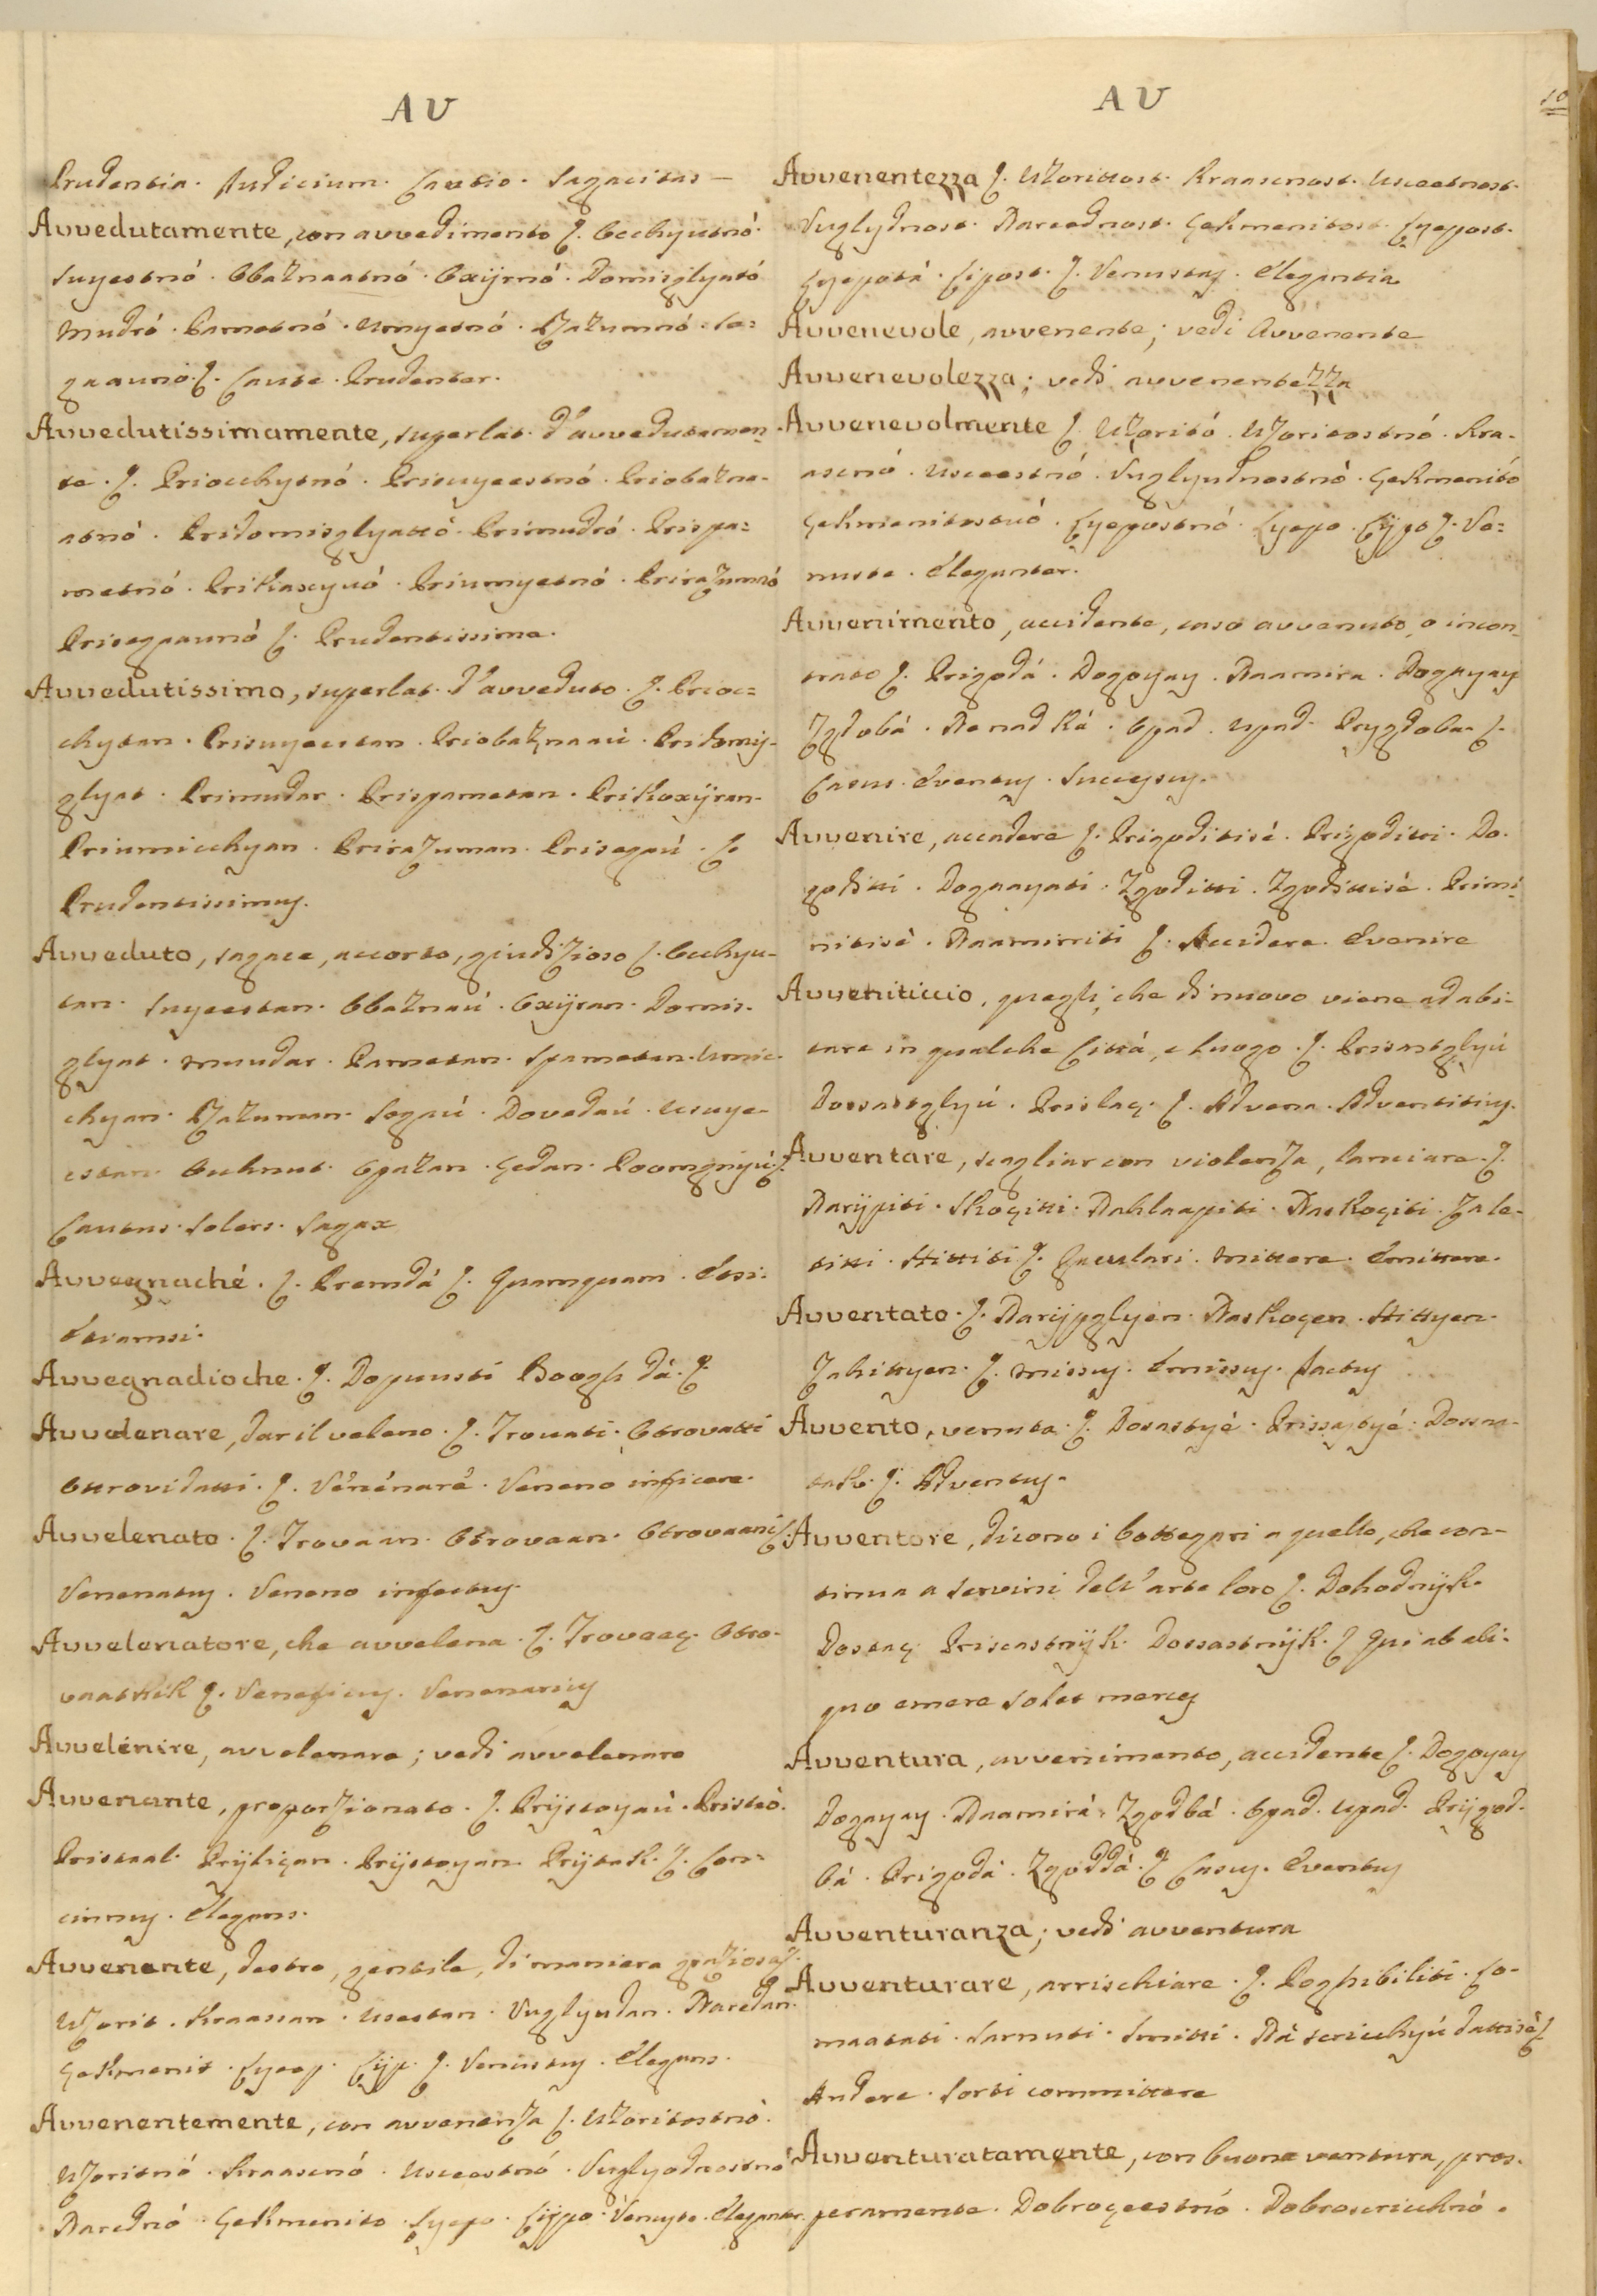 AU
Prudentia. Judicium. Cautio. Sagacitas —
Avvedutamente, con avvedimento ſ. Occhyutnó.
Suyestnó. Obaznaatnó. Oxijrnó. Domisglyató
Mudró. Pametnó. Umyetnó. Razumnó. Se=
gaaunó. ſ. Caute. Prudenter.
Avvedutissimamente, superlat. d'avvedutamen=
te. ſ. Priocchytnó. Prisuyeestnó. Priobazna-
atnó. Pridomisglyattó. Primudró. Prispa=
metnó. Prikascyuó. Priumyetnó. Prirazumnó
Prisegnaunó ſ. Prudentissime.
Avvedutissimo, superlat. d'avveduto. ſ. Prioc=
chytan. Prisuyeestan. Priobaznaaú. Pridomis-
glyat. Primudar. Prispametan. Prikoxijran.
Priumicchyan. Prirazuman. Prisegaú. ſ.
Prudentissimus.
Avveduto, sagace, accorto, giudizioso ſ. Occhyu-
tan. Suyeestan. Obaznaú. Oxijran. Domis-
glyat. Muudar. Pametan. Spametan. Umic-
chyan. Razuman. Segaú. Dovedaú. Usuye-
estan. Ochnut. Opazan. Gedan. Poomgnyú. ſ.
Cautus. Solers. Sagax
Avvegnaché. ſ. Premdá ſ. Quamquam. Etsi.
Etiamsi.
Avvegnadioche. ſ. Dopuusti Boogh dá. ſ.
Avvelenare, dar il veleno. ſ. Trovati. Otrovatti
Ottrovidatti. ſ. Venenare. Veneno inficere.
Avvelenato. ſ. Trovaan. Otrovaan. Otrovaani ſ.
Venenatus. Veneno infectus.
Avvelenatore, che avvelena. ſ. Trovaaç. Otro-
vaatkik ſ. Veneficus. Venenarius
Avvelenire, avvelenare; vedi avvelenare
Avvenante, proporzionato. ſ. Prijstoyaú. Pristoó.
Pristaal. Prijliçan. Prijstoyan. Prijtak. ſ. Con=
cinnus. Elegans.
Avvenente, destro, gentile, di maniera graziosa ſ.
Uzorit. Kraassan. Useetan. Vuglyudan. Naredan.
Gekmenit. Lyeep. Lijp. ſ. Venustus. Elegans.
Avvenentemente, con avvenenza ſ. Uzoritostnó.
Uzoritnó. Kraasnó. Usceostnó. Vuglyodnostnó
Narednó. Gekmenito. Lyepo. Lijpo. Venuste. Eleganter.
AU
10
Avvenentezza ſ. Uzorittost. Kraasnost. Usceetnost.
Vuglydnost. Nareednost. Gekmenitost. Lyepost.
Lyepotá. Lipost. ſ. Venustas. Elegantia
Avvenevole, avvenente; vedi Avvenente
Avvenevolezza; vedi avvenentezza
Avvenevolmente ſ. Uzoritó. Uzoritostnó. Kra-
asnó. Usceestnó. Vuglyudnostnó. Gekmenitó
Gekmenitostnó. Lyepostnó. Lyepo. Lijpo ſ. Ve=
nuste. Eleganter.
Avvenimento, accidente, caso avvenuto, o incon=
trato ſ. Prigodá. Dogoyay. Naamira. Dogayay
Zgdobá. Nenadká. Opad. Upad. Prygdoba. ſ.
Casus. Eventus. Successus.
Avvenire, accadere ſ. Prigoditisé. Prigoditti. Do-
goditti. Dogaayati. Zgoditti. Zgodittisé. Primi-
nitisé. Naamirriti ſ. Accidere. Evenire
Avveniticcio, quegli, che di nuovo viene ad abi-
tare in qualche Cittá, e luogo. ſ. Prisastglyú
Dossastglyú. Prislaç. ſ. Advena. Adventitius.
Avventare, scagliar con violenza, lanciare. ſ.
Narijpiti. Skoçitti. Nahlaapiti. Naskoçiti. Zale-
titti. Hittiti ſ. Jaculari. Mittere. Emittere.
Avventato. ſ. Narijpglyen. Naskoçen. Hittyen.
Zahittyen. ſ. Missus. Emissus. Jactus
Avvento, venuta. ſ. Dosastyé. Prissastyé. Dossa-
tak. ſ. Adventus.
Avventore, dicono i bottegari a quello, che con-
tinua a servirsi dell'arte loro ſ. Dohodnijk.
Dostaç. Priscastnijk. Dossastnijk. ſ. Qui ab ali-
quo emere solet merces
Avventura, avvenimento, accidente ſ. Dogoyay
Dogayay. Naamirá. Zgodbá. Opad. Upad. Prijgod-
bá. Prigodá. Zgoddá. ſ. Casus. Eventus
Avventuranza; vedi avventura
Avventurare, arrischiare. ſ. Poghibiliti. So-
maatati. Sarnuti. Smitti. Ná scricchyú dattisé ſ.
Audere. Sorti committere
Avventuratamente, con buona ventura, pros-
peramente. Dobroçeestnó. Dobroscricchnó.